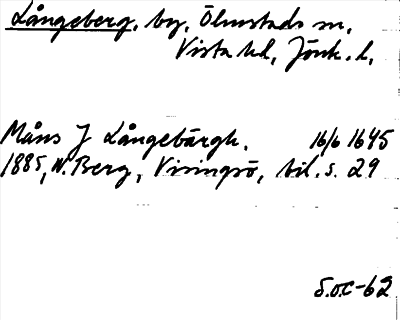 Långeberg, by, Ölmstads sn,
Vista hd, Jönk. l,
Måns J Långebärgh. 16/6 1645
1885, N. Berg, Visingsö, bil. s. 29
S.O.C-62